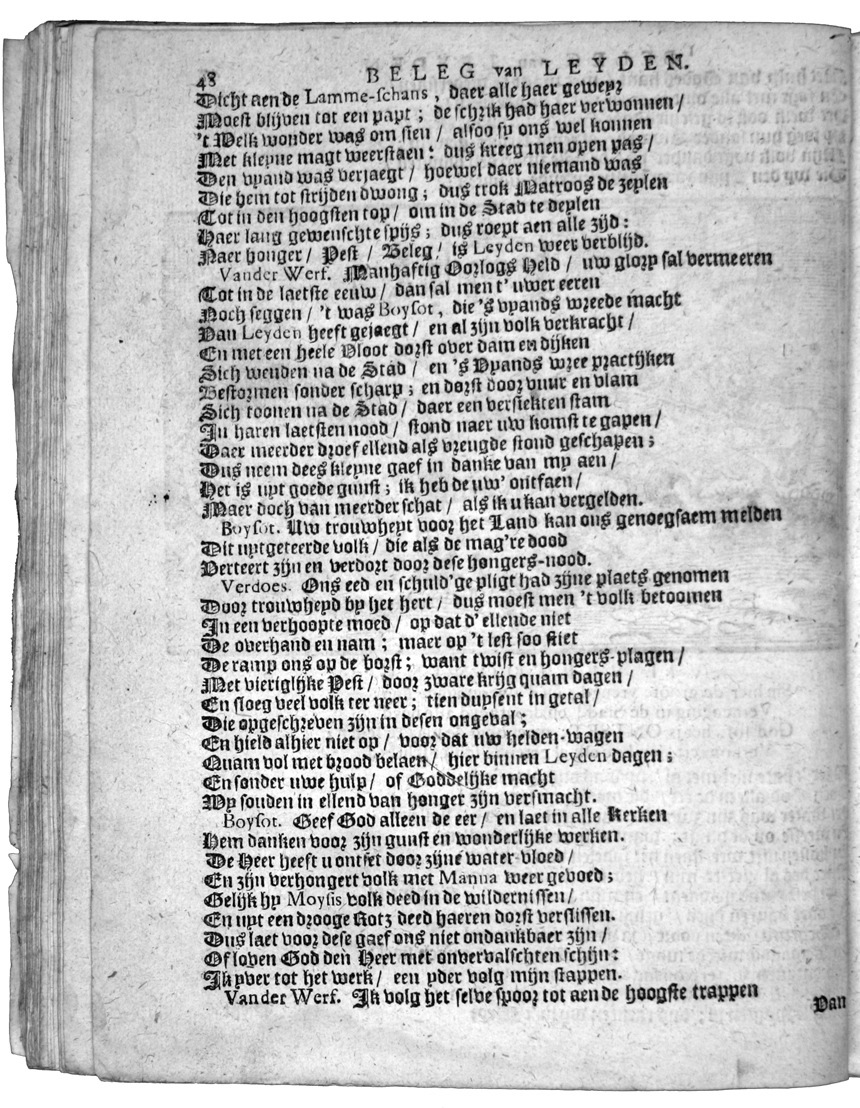 48 BELEG van LEYDEN.
Dicht aen de Lamme-schans, daer alle haer geweyr
Moest blijven tot een papt; de schrik had haer verwonnen/
't Welk wonder was om sien/ alsoo sy ons wel konnen
Met kleyne magt weerstaen: dus kreeg men open pas/
Den vyand was verjaegt/ hoewel daer niemand was
Die hem tot strijden dwong; dus trok Matroos de zeylen
Tot in den hoogsten top/ om in de Stad te deylen
Haer lang gewenschte spijs; dus roept aen alle zijd:
Naer honger/ Pest/ Beleg/ is Leyden weer verblijd.
Vander Werf. Manhaftig Oorlogs Held/ uw glory sal vermeeren
Tot in de laetste eeuw/ dan sal men t' uwer eeren
Noch seggen/ 't was Boysot, die 's vyands wreede macht
Van Leyden heeft gejaegt/ en al zijn volk verkracht/
En met een heele Vloot dorst over dam en dijken
Sich wenden na de Stad/ en 's Vyands wree practijken
Bestormen sonder scharp; en dorst door vuur en vlam
Sich toonen na de Stad/ daer een versiekten stam
In haren laetsten nood/ stond naer uw komst te gapen/
Daer meerder droef ellend als vreugde stond geschapen;
Dus neem dees kleyne gaef in danke van my aen/
Het is uyt goede gunst; ik heb de uw' ontfaen/
Maer doch van meerder schat/ als ik u kan vergelden.
Boysot. Uw trouwheyt voor het Land kan ons genoegsaem melden
Dit uytgeteerde volk/ die als de mag're dood
Verteert zijn en verdort door dese hongers-nood.
Verdoes. Ons eed en schuld'ge pligt had zijne plaets genomen
Door trouwheyd by het hert/ dus moest men 't volk betoomen
In een verhoopte moed/ op dat d' ellende niet
De overhand en nam; maer op 't lest soo stiet
De ramp ons op de borst; want twist en hongers-plagen/
Met vieriglijke Pest/ door zware krijg quam dagen/
En sloeg veel volk ter neer; tien duysent in getal/
Die opgeschreven zijn in desen ongeval;
En hield alhier niet op/ voor dat uw helden-wagen
Quam vol met brood belaen/ hier binnen Leyden dagen;
En sonder uwe hulp/ of Goddelijke macht
Wy souden in ellend van honger zijn versmacht.
Boysot. Geef God alleen de eer/ en laet in alle Kerken
Hem danken voor zijn gunst en wonderlijke werken.
De Heer heeft u ontset door zijne water-vloed/
En zijn verhongert volk met Manna weer gevoed;
Gelijk hy Moysis volk deed in de wildernissen/
En uyt een drooge Rotz deed haeren dorst verslissen.
Dus laet voor dese gaef ons niet ondankbaer zijn/
Of loven God den Heer met onvervalschten schijn:
Ik yver tot het werk/ een yder volg mijn stappen.
Vander Werf. Ik volg het selve spoor tot aen de hoogste trappen
Van